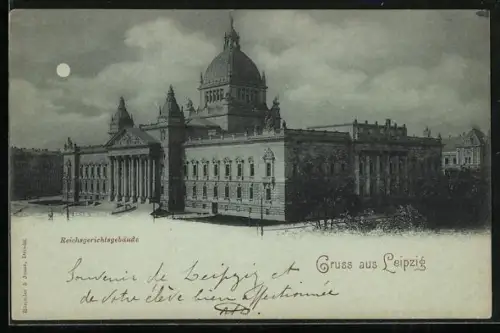 Reichsgerichtsgebäude
Gruss aus Leipzig
Souvenir de Leipzig et
de votre élève bien affectionnée